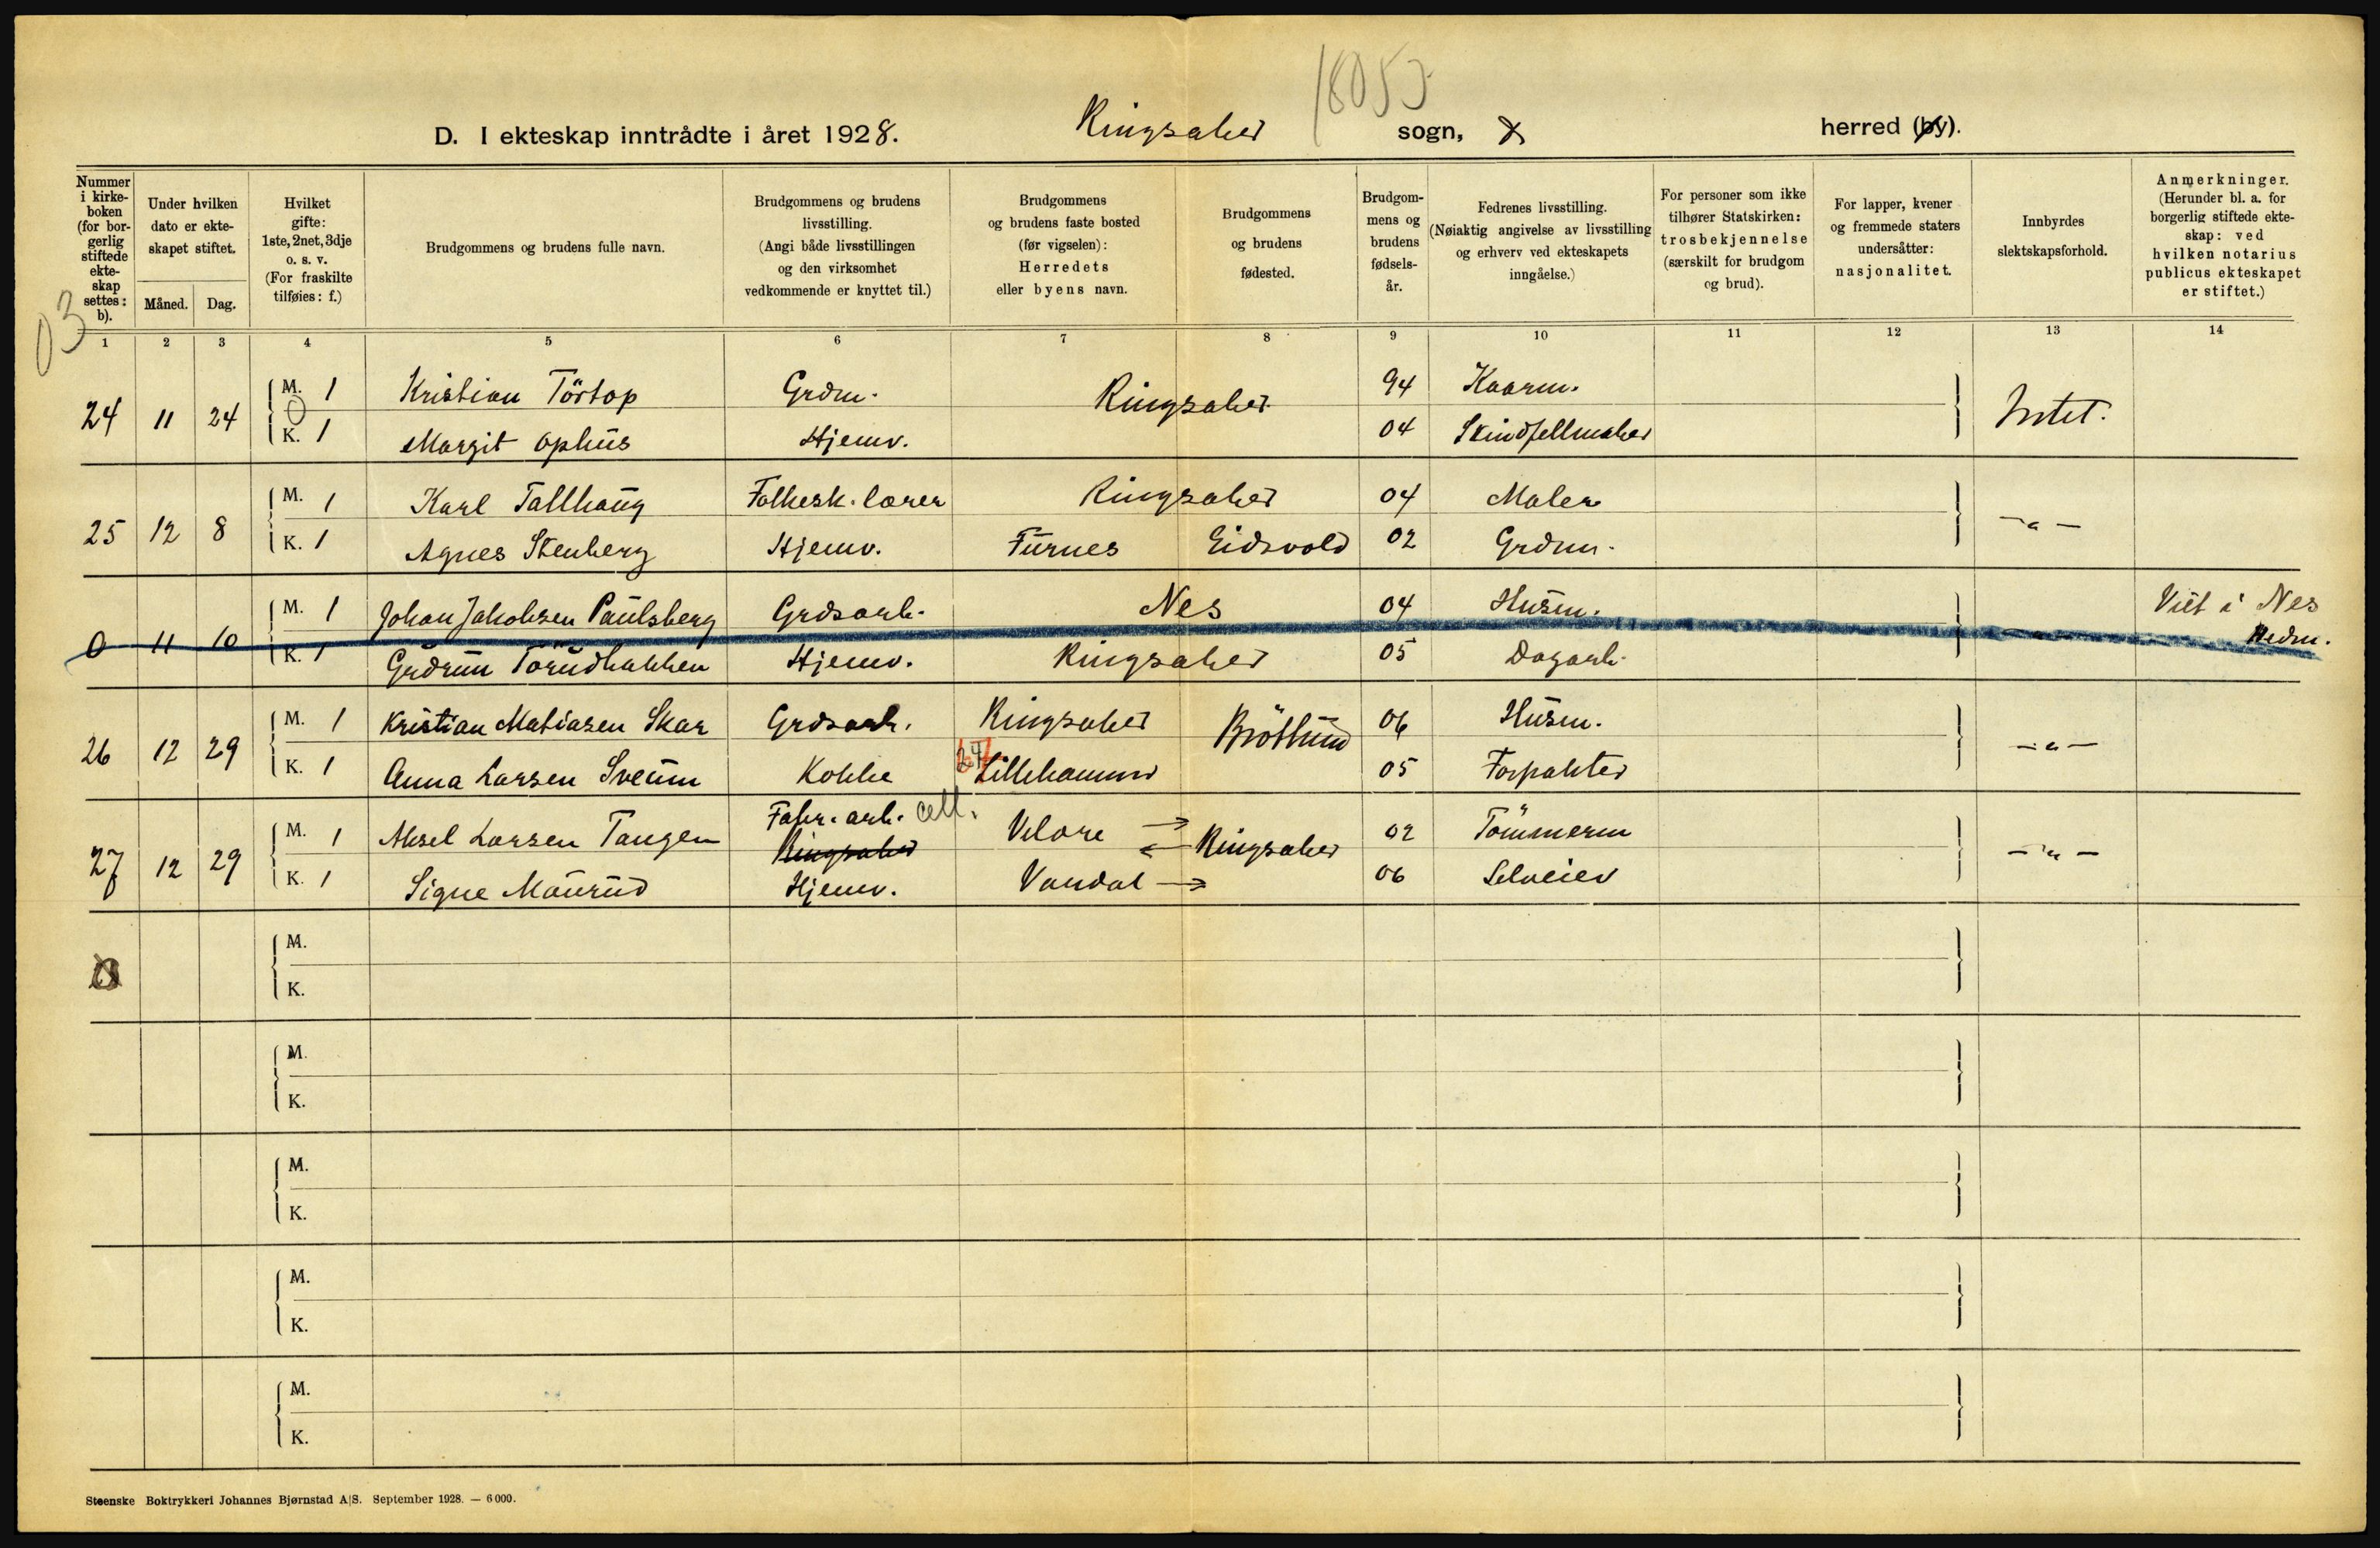 18053
D. I ekteskap inntrådte i året 1928. Ringsaker sogn, herred (by).
Nummer i kirkeboken (for borgerlig stiftede ekteskap settes: b).
Under hvilken dato er ekteskapet stiftet.
Måned. Dag.
Hvilket gifte: 1ste, 2net, 3dje o. s. v. (For fraskilte tilføies: f.)
Brudgommens og brudens fulle navn.
Brudgommens og brudens livsstilling. (Angi både livsstillingen og den virksomhet vedkommende er knyttet til.)
Brudgommens og brudens faste bosted (før vigselen): Herredets eller byens navn.
Brudgommens og brudens fødested.
Brudgommens og brudens fødselsår.
Fedrenes livsstilling. (Nøiaktig angivelse av livsstilling og erhverv ved ekteskapets inngåelse.)
For personer som ikke tilhører Statskirken: trosbekjennelse (særskilt for brudgom og brud).
For lapper, kvener og fremmede staters undersåtter: nasjonalitet.
Innbyrdes slektskapsforhold.
Anmerkninger. (Herunder bl. a. for borgerlig stiftede ekteskap: ved hvilken notarius publicus ekteskapet er stiftet.)
03
1 2 3 4 5 6 7 8 9 10 11 12 13 14
24 11 24 M. 1 Kristian Törtop Grdm. Ringsaker 94 Kaarm. Intet.
0
K. 1 Margit Ophus Hjemv. 04 Skindfellmaker
25 12 8 M. 1 Karl Tallhaug Folkesk. lærer Ringsaker 04 Maler -"-
K. 1 Agnes Stenberg Hjemv. Furnes Eidsvold 02 Grdm.
0 11 10 M. 1 Johan Jakobsen Paulsberg Grdsarb. Nes 04 Husm. -"- Viet i Nes Hedm.
K. 1 Gudrun Torudbakken Hjemv. Ringsaker 05 Dagarb.
26 12 29 M. 1 Kristian Matiasen Skar Grdsarb. Ringsaker Bröttum 06 Husm. -"-
K. 1 Anna Larsen Sveum Kokke Lillehammer 05 Forpakter
27 12 29 M. 1 Aksel Larsen Tangen Fabr. arb. cell. Ringsaker Velore Ringsaker 02 Tömmerm -"-
K. 1 Signe Maurud Hjemv. Vandal 06 Selveier
M.
K.
M.
K.
M.
K.
M.
K.
M.
K.
Steenske Boktrykkeri Johannes Bjørnstad A|S. September 1928. — 6000.